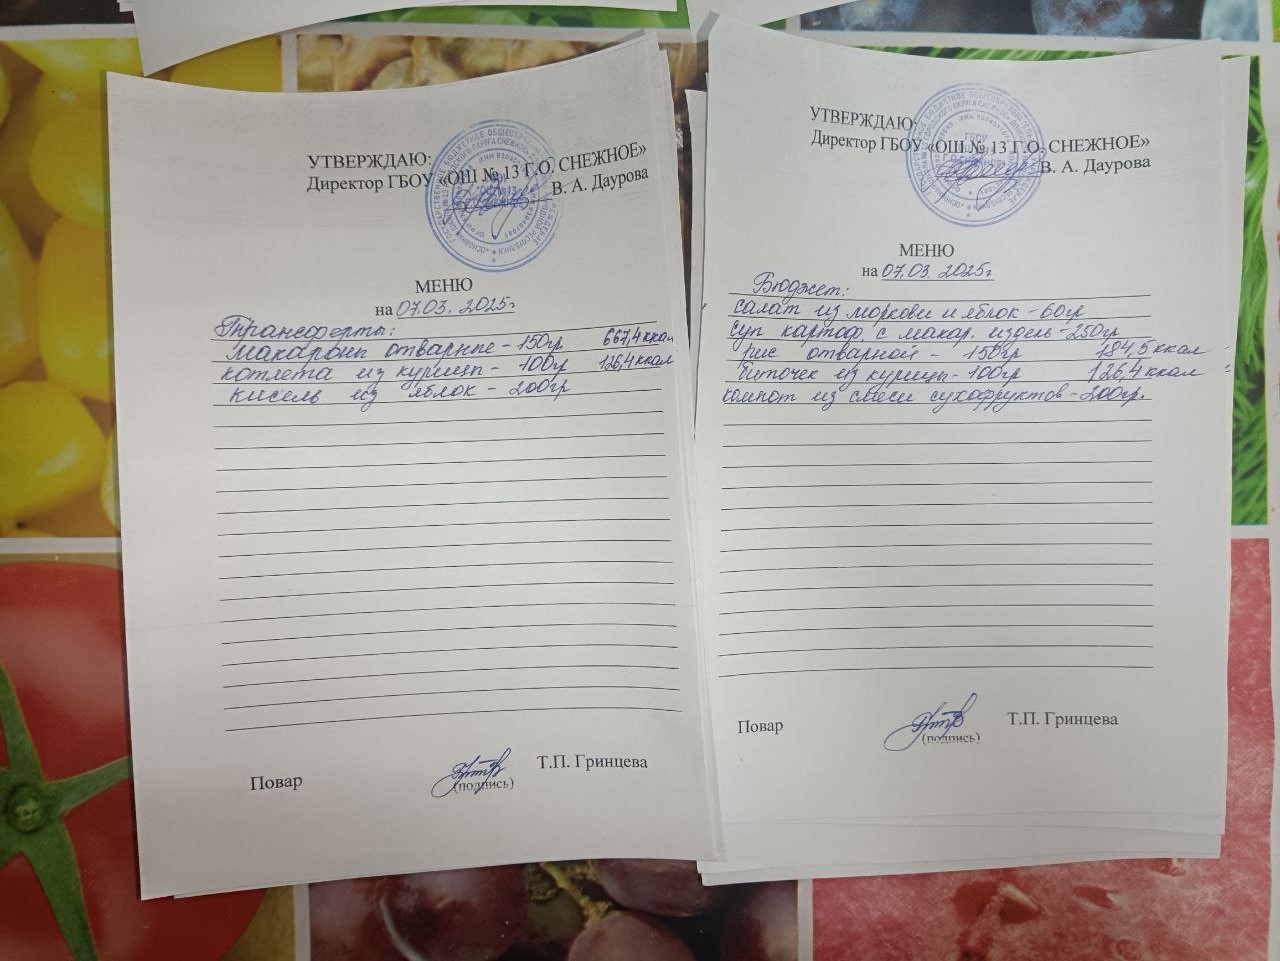 УТВЕРЖДАЮ:
Директор ГБОУ «ОШ № 13 Г.О. СНЕЖНОЕ»
В. А. Даурова
МЕНЮ
на 07.03. 2025г
Трансферты:
макароны отварные - 150гр 667,4 ккал
котлета из курицы - 100гр 126,4 ккал
кисель из яблок - 200гр
Повар
(подпись)
Т.П. Гринцева
УТВЕРЖДАЮ:
Директор ГБОУ «ОШ № 13 Г.О. СНЕЖНОЕ»
В. А. Даурова
МЕНЮ
на 07.03. 2025г
Бюджет:
салат из моркови и яблок - 60гр
суп картоф. с макар. издель - 250гр
рис отварной - 150гр 184,5 ккал
биточек из курицы - 100гр 126,4 ккал
компот из смеси сухофруктов - 200гр.
Повар
(подпись)
Т.П. Гринцева